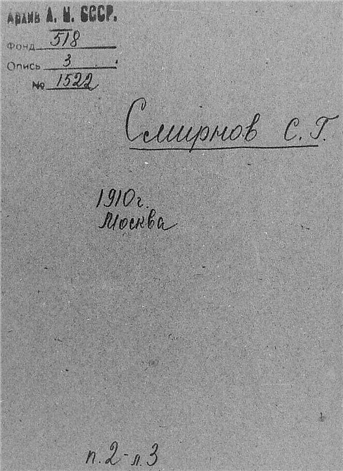 Архив А. Н. СССР.
Фонд 518
Опись 3
№ 1522
Смирнов С. Г.
1910г.
Москва
п. 2-л. 3